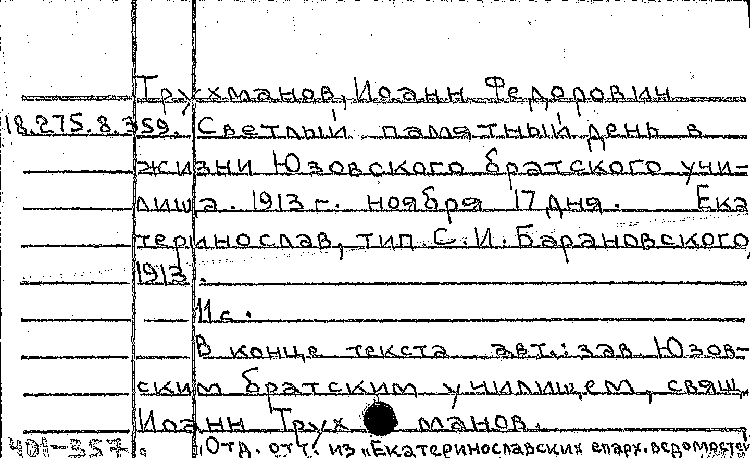 Трухманов, Иоанн Федорович
18.275.8.359. Светлый памятный день в
жизни Юзовского братского учи-
лища. 1913 г. ноября 17 дня. Ека
теринослав, тип С.И. Барановского,
1913.
11 с.
В конце текста авт.: зав. Юзов-
ским братским училищем, свящ.
Иоанн Трухманов.
401-357. Отд. отт. из „Екатеринославских епарх. ведомостей